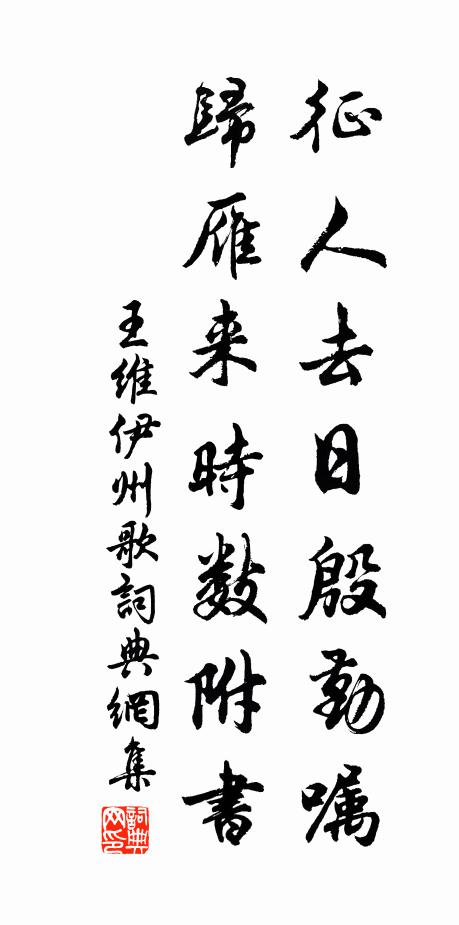 征人去日殷勤嘱
歸雁来時數附書
王維伊州歌詞典網集
詞典网印